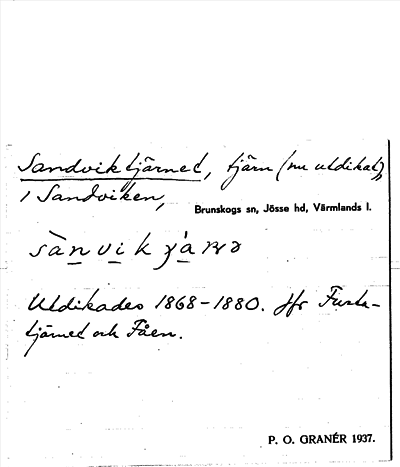 Sandviktjärnet, tjärn (nu utdikat),
i Sandviken,
Brunskogs sn, Jösse hd, Värmlands l.
Utdikades 1868-1880. Jfr
tjärnet och Fåen.
P. O. GRANÉR 1937.